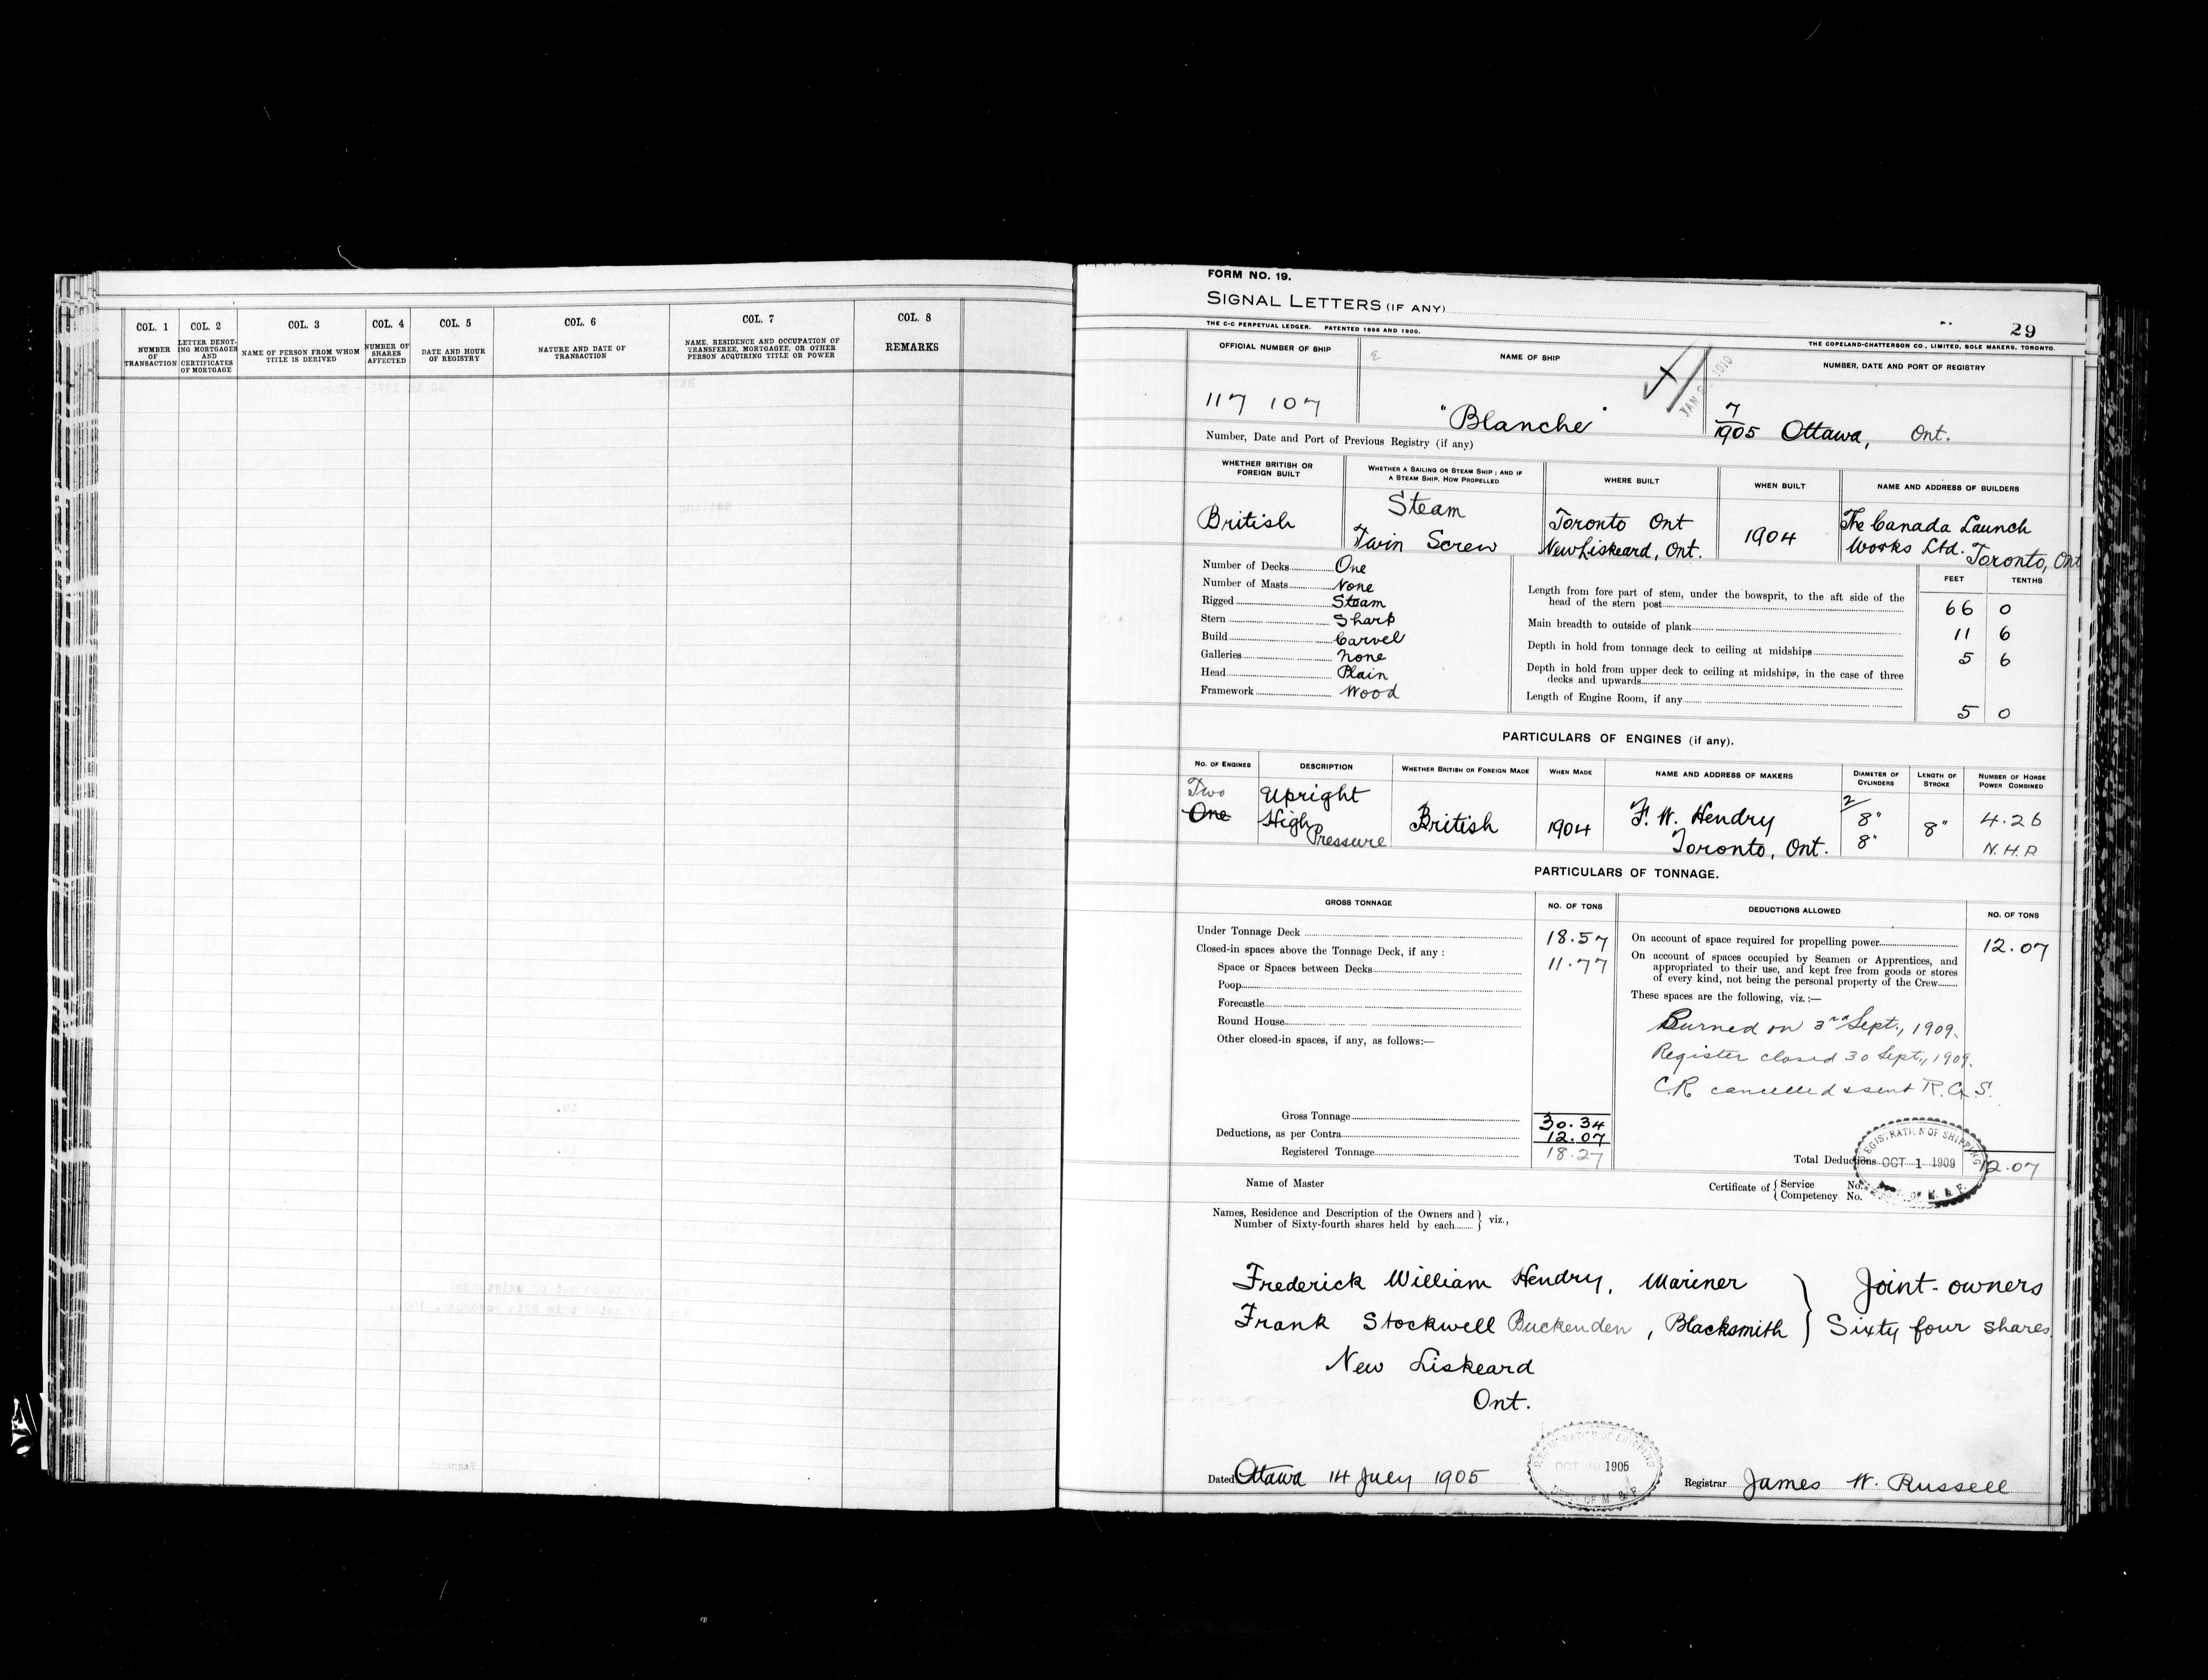 COL. 1 COL. 2 COL. 3 COL. 4 COL. 5 COL. 6 COL. 7 COL. 8
NUMBER OF TRANSACTION
LETTER DENOTING MORTGAGES AND CERTIFICATES OF MORTGAGE
NAME OF PERSON FROM WHOM TITLE IS DERIVED
NUMBER OF SHARES AFFECTED
DATE AND HOUR OF REGISTRY
NATURE AND DATE OF TRANSACTION
NAME, RESIDENCE AND OCCUPATION OF TRANSFEREE, MORTGAGEE, OR OTHER PERSON ACQUIRING TITLE OR POWER
REMARKS
FORM NO. 19.
SIGNAL LETTERS (IF ANY)
29
THE C-C PERPETUAL LEDGER. PATENTED 1896 AND 1900.
THE COPELAND-CHATTERSON CO., LIMITED, SOLE MAKERS, TORONTO.
OFFICIAL NUMBER OF SHIP
NAME OF SHIP
NUMBER, DATE AND PORT OF REGISTRY
JAN 1910
117 107
"Blanche"
7/1905 Ottawa, Ont.
Number, Date and Port of Previous Registry (if any)
WHETHER BRITISH OR FOREIGN BUILT
WHETHER A SAILING OR STEAM SHIP; AND IF A STEAM SHIP, HOW PROPELLED
WHERE BUILT
WHEN BUILT
NAME AND ADDRESS OF BUILDERS
British
Steam
Twin Screw
Toronto Ont
New Liskeard, Ont.
1904
The Canada Launch
Works Ltd. Toronto, Ont
FEET TENTHS
Number of Decks One
Number of Masts None
Rigged Steam
Stern Sharp
Build Carvel
Galleries None
Head Plain
Framework Wood
Length from fore part of stem, under the bowsprit, to the aft side of the
head of the stern post 66 0
Main breadth to outside of plank 11 6
Depth in hold from tonnage deck to ceiling at midships 5 6
Depth in hold from upper deck to ceiling at midships, in the case of three
decks and upwards
Length of Engine Room, if any 5 0
PARTICULARS OF ENGINES (if any).
NO. OF ENGINES
DESCRIPTION
WHETHER BRITISH OR FOREIGN MADE
WHEN MADE
NAME AND ADDRESS OF MAKERS
DIAMETER OF CYLINDERS
LENGTH OF STROKE
NUMBER OF HORSE POWER COMBINED
Two
One
Upright
High
Pressure
British
1904
F. W. Hendry
Toronto, Ont.
2/
8"
8"
8"
4.26
N.H.P
PARTICULARS OF TONNAGE.
GROSS TONNAGE NO. OF TONS
DEDUCTIONS ALLOWED NO. OF TONS
Under Tonnage Deck 18.57
Closed-in spaces above the Tonnage Deck, if any:
Space or Spaces between Decks 11.77
Poop
Forecastle
Round House
Other closed-in spaces, if any, as follows:—
Gross Tonnage 30.34
Deductions, as per Contra 12.07
Registered Tonnage 18.27
On account of space required for propelling power 12.07
On account of spaces occupied by Seamen or Apprentices, and
appropriated to their use, and kept free from goods or stores
of every kind, not being the personal property of the Crew
These spaces are the following, viz.:—
Burned on 3rd Sept., 1909.
Register closed 30 Sept., 1909.
C.R. cancelled & sent R.G.S.
REGISTRATION OF SHIPPING
OCT 1 1909
OF M. & F.
Total Deductions 12.07
Name of Master
Certificate of { Service No.
Competency No.
Names, Residence and Description of the Owners and
Number of Sixty-fourth shares held by each } viz.,
Frederick William Hendry, Mariner } Joint-owners
Frank Stockwell Buckenden, Blacksmith } Sixty four shares.
New Liskeard
Ont.
Dated Ottawa 14 July 1905
REGISTRATION OF SHIPPING
OCT 1905
DEPT. OF M. & F.
Registrar James W. Russell